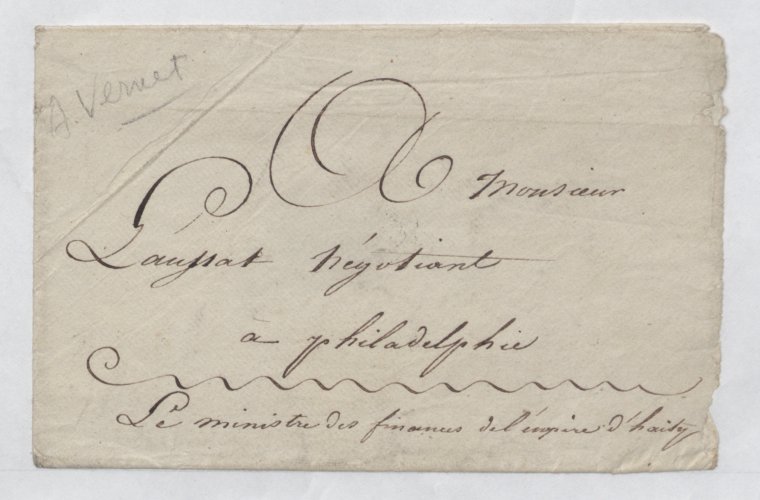 A. Vernet
A Monsieur
Laussat négotiant
à philadelphie
Le ministre des finances de l'empire d'haity